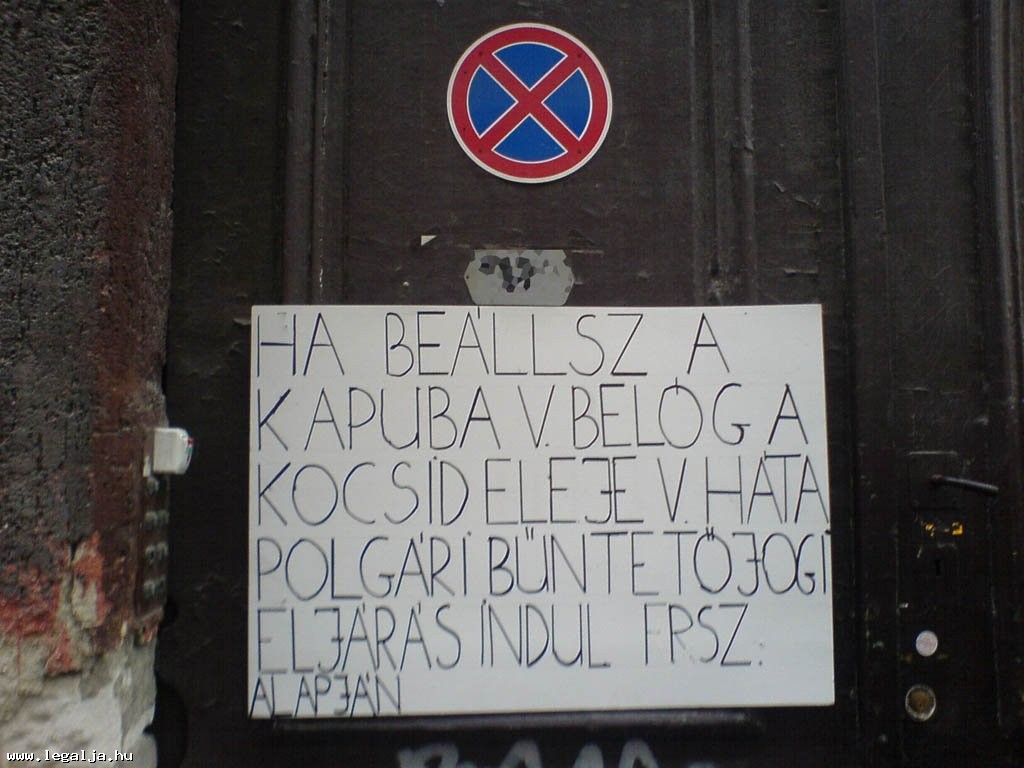 HA BEÁLLSZ A
KAPUBA V. BELÓG A
KOCSID ELEJE V. HÁTA
POLGÁRI BŰNTETŐJOGI
ELJÁRÁS INDUL FRSZ.
ALAPJÁN
www.legalja.hu